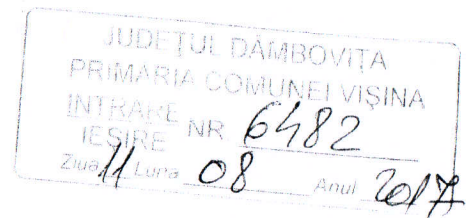 JUDEȚUL DÂMBOVIȚA
PRIMĂRIA COMUNEI VIȘINA
INTRARE
IEȘIRE NR 6482
Ziua 11 Luna 08 Anul 2017